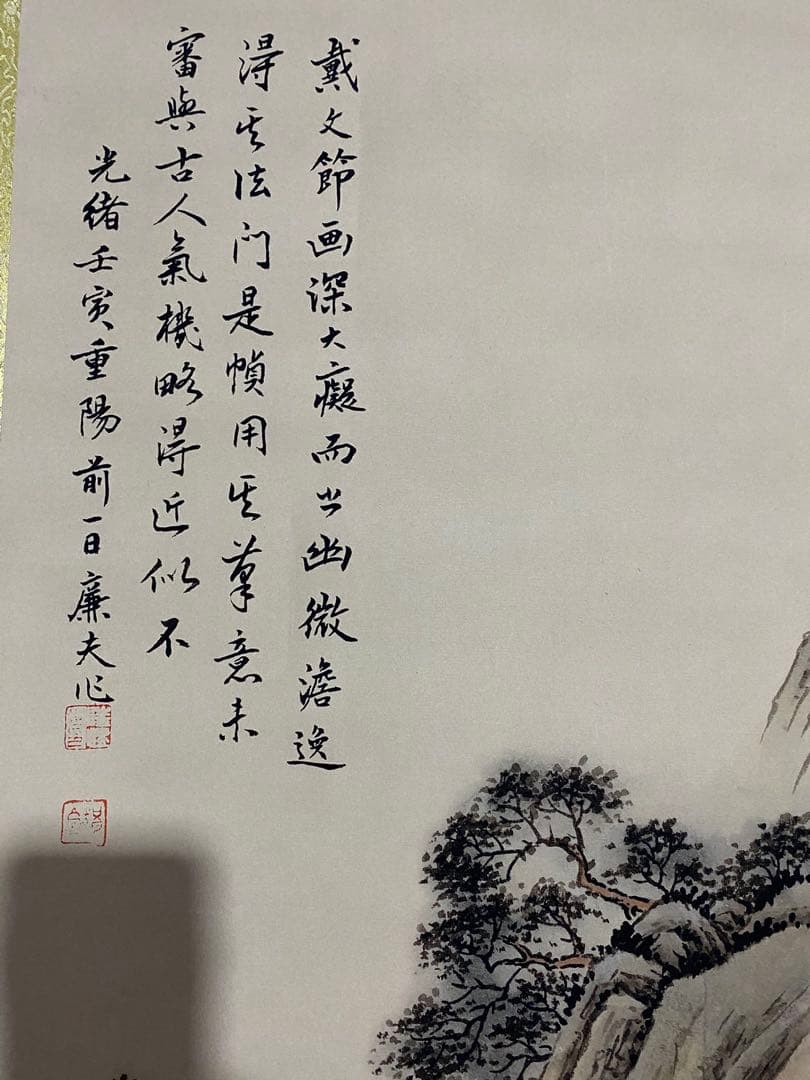 戴文節画深大癡而出幽微澹逸
淂其法门是幀用其筆意未
審與古人氣機略淂近似不
光緒壬寅重陽前一日廉夫作